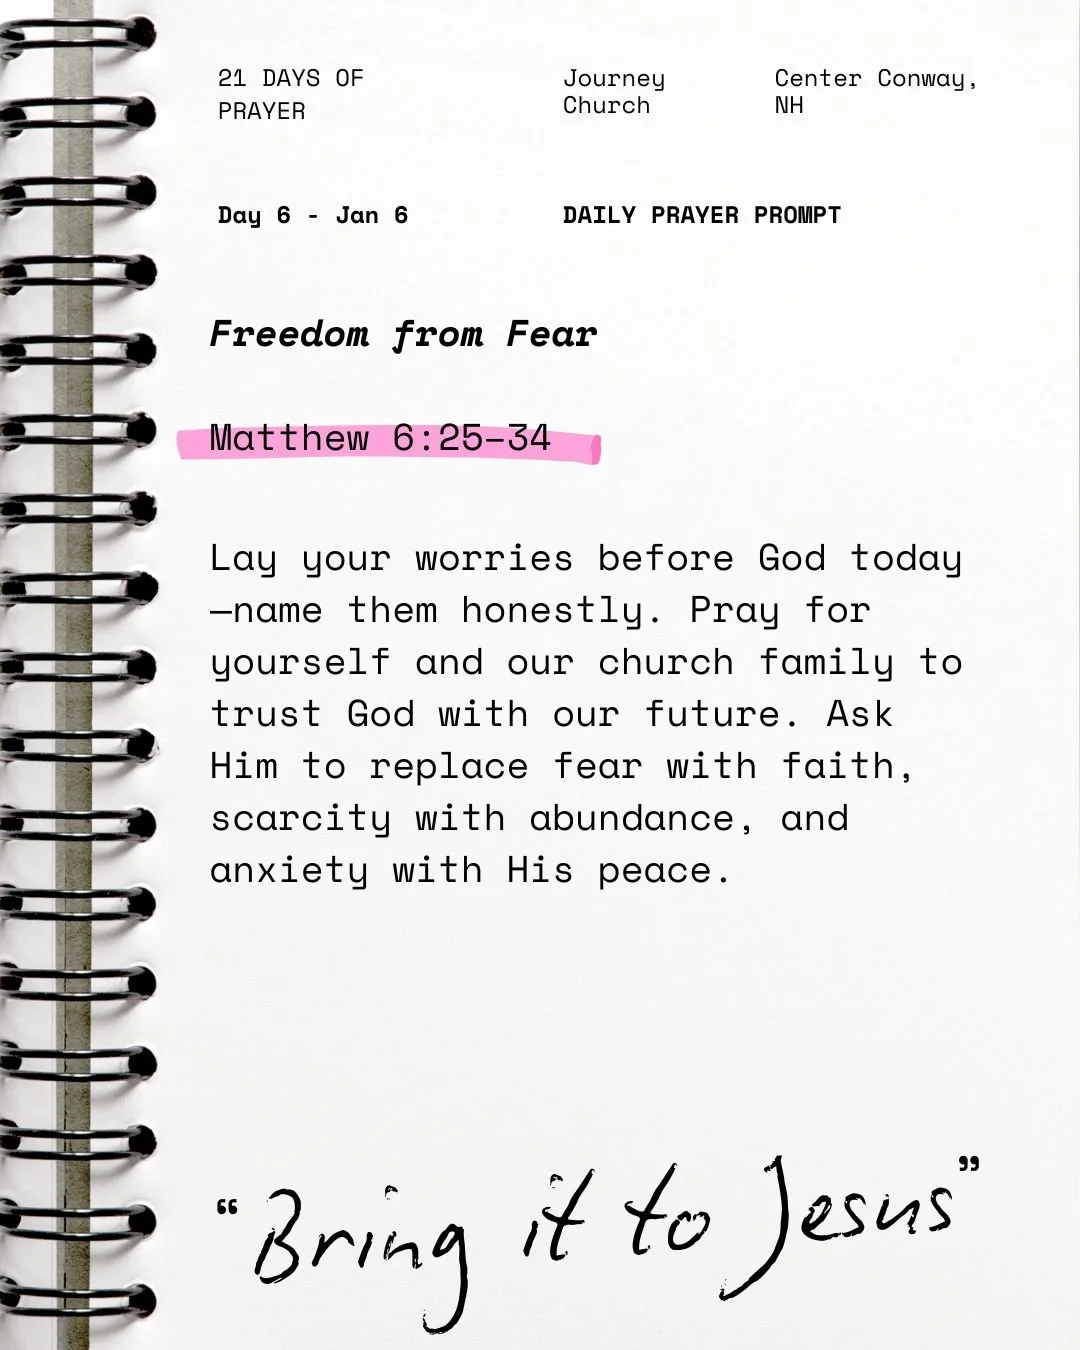 21 DAYS OF
PRAYER
Journey
Church
Center Conway,
NH
Day 6 - Jan 6
DAILY PRAYER PROMPT
Freedom from Fear
Matthew 6:25–34
Lay your worries before God today
—name them honestly. Pray for
yourself and our church family to
trust God with our future. Ask
Him to replace fear with faith,
scarcity with abundance, and
anxiety with His peace.
“Bring it to Jesus”